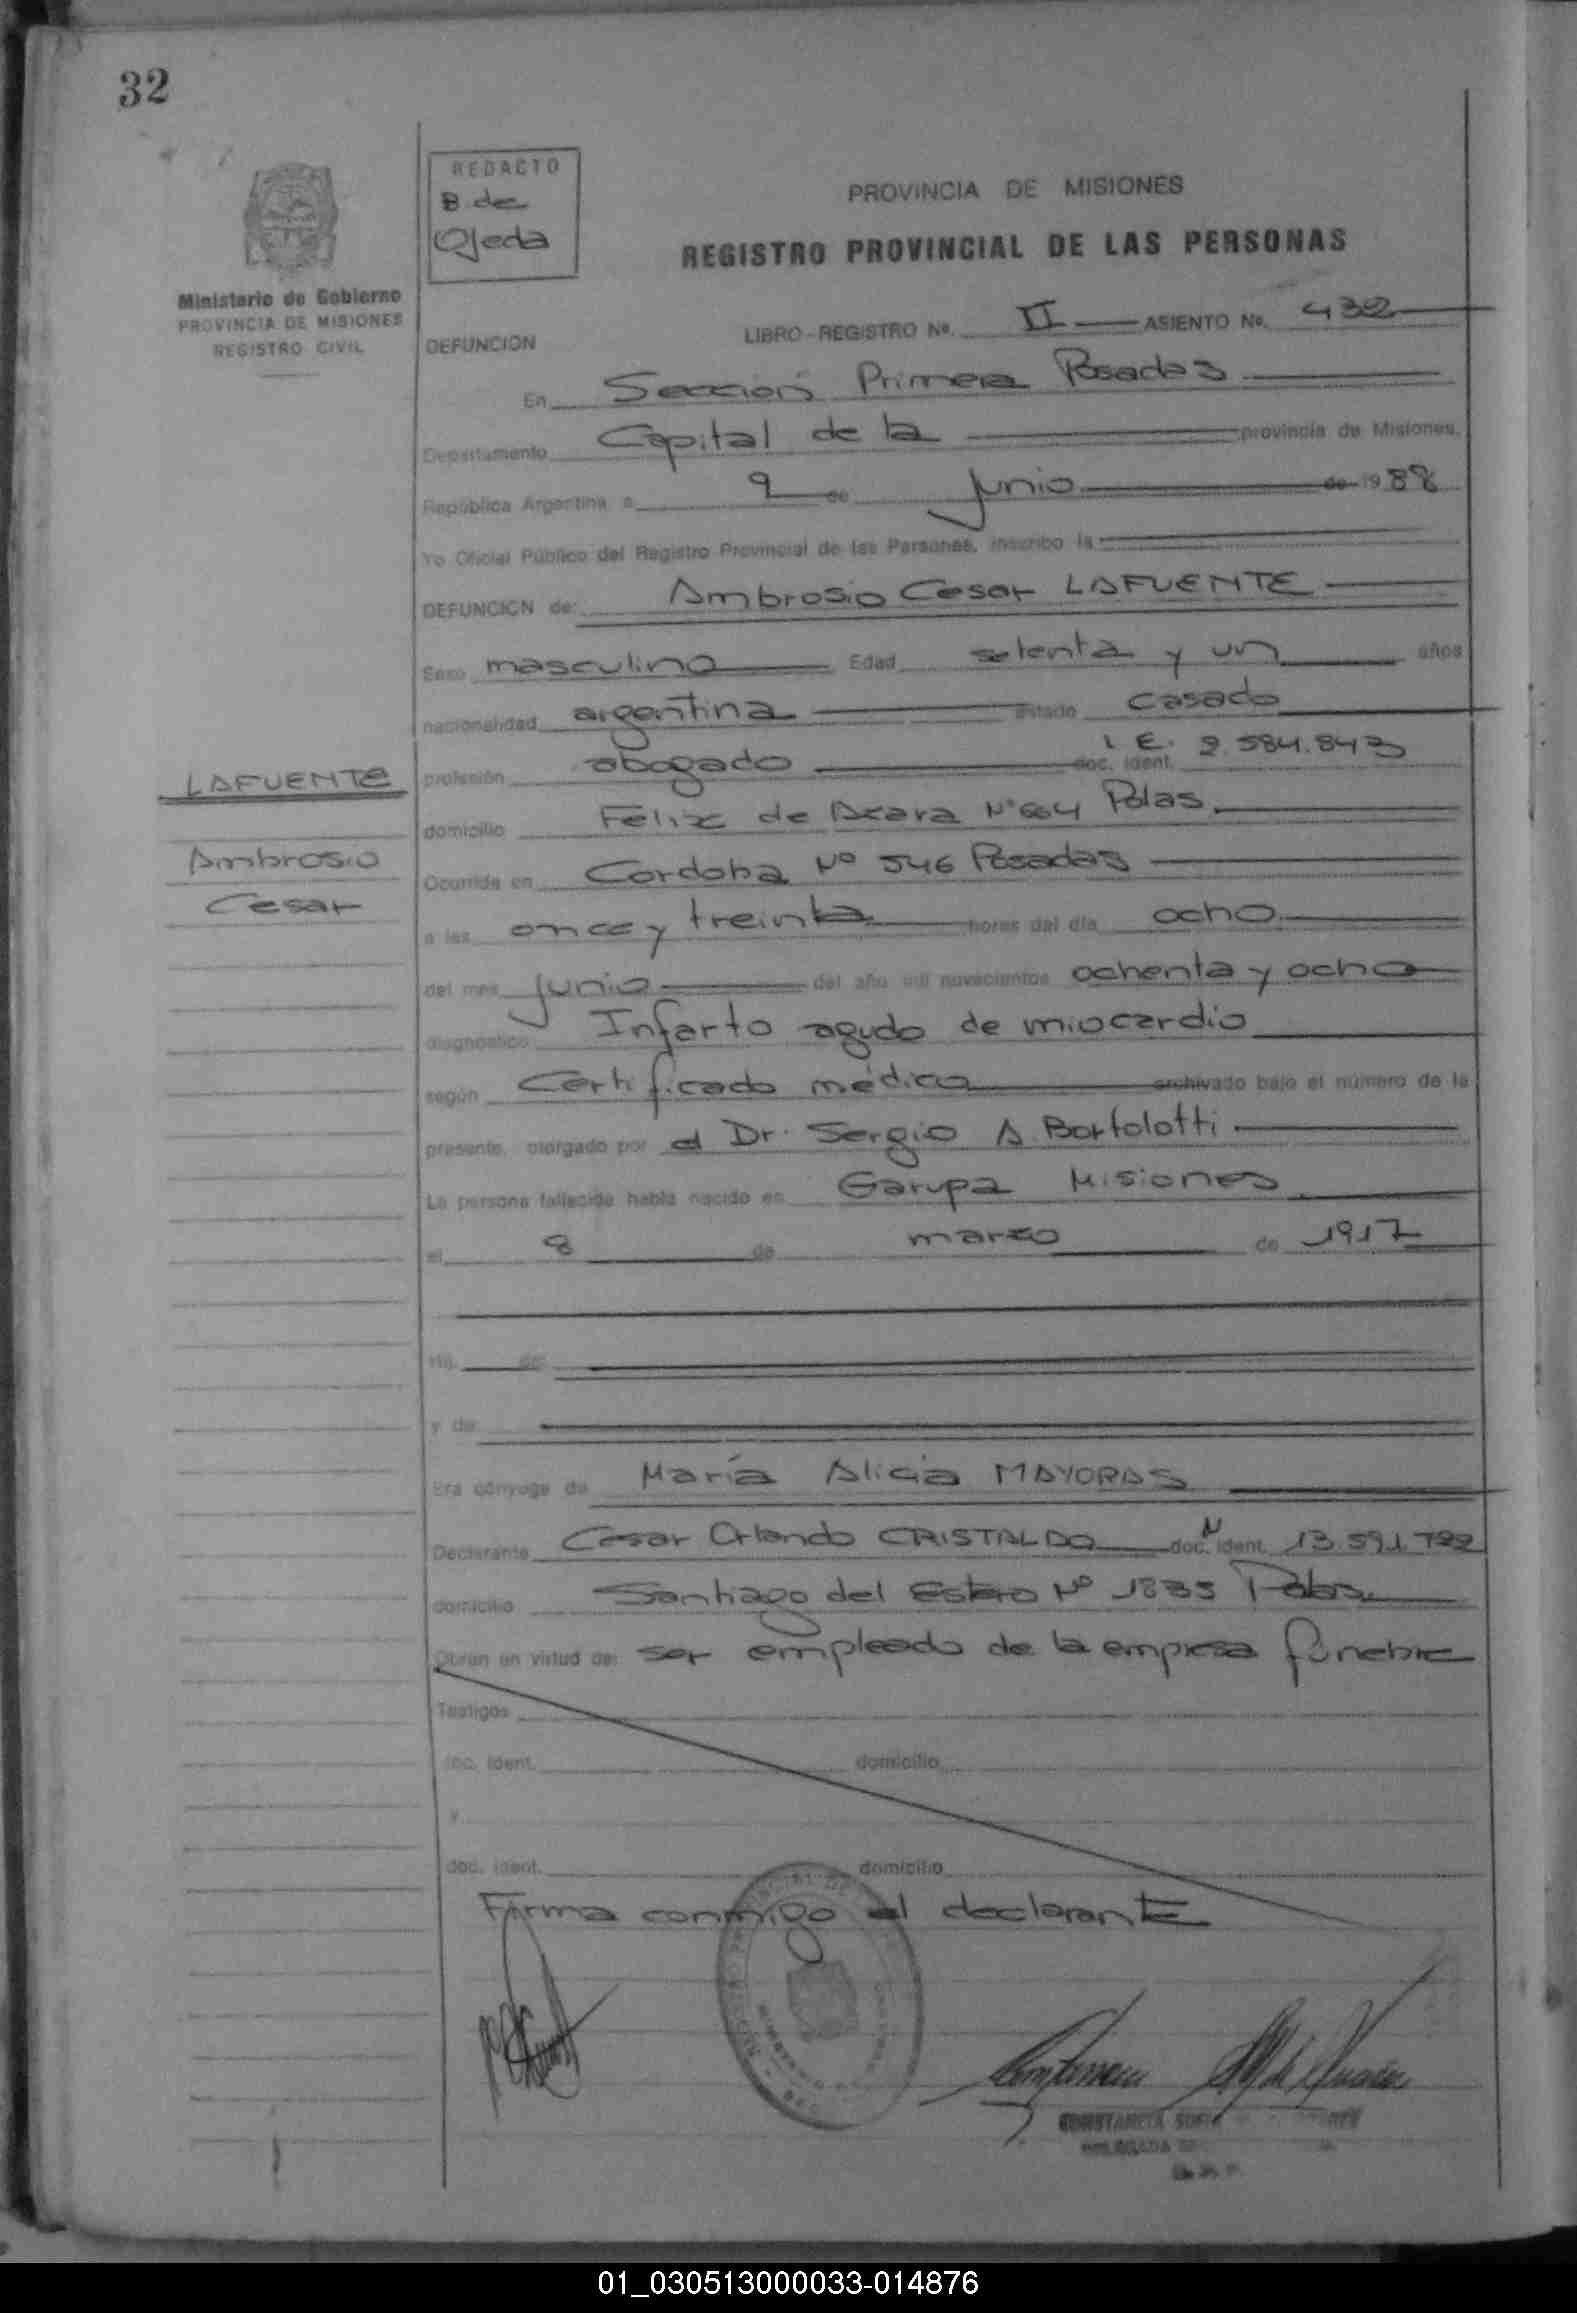 32
REDACTO
B. de
Ojeda
Ministerio de Gobierno
PROVINCIA DE MISIONES
REGISTRO CIVIL
PROVINCIA DE MISIONES
REGISTRO PROVINCIAL DE LAS PERSONAS
DEFUNCION LIBRO-REGISTRO No. II ASIENTO No. 432
En Sección Primera Posadas
Departamento Capital de la provincia de Misiones,
República Argentina, a 9 de junio de 1988
Yo Oficial Público del Registro Provincial de las Personas, inscribo la
DEFUNCION de: Ambrosio Cesar LAFUENTE
Sexo masculino Edad setenta y un años
nacionalidad argentina estado casado
profesión abogado doc. ident. L.E. 2.584.843
domicilio Felix de Azara Nº 664 Pdas
Ocurrida en Cordoba Nº 546 Posadas
a las once y treinta horas del día ocho
del mes junio del año mil novecientos ochenta y ocho
diagnóstico Infarto agudo de miocardio
según Certificado médico archivado bajo el número de la
presente, otorgado por el Dr. Sergio A. Bortolotti
La persona fallecida había nacido en Garupa Misiones
el 8 de marzo de 1917
LAFUENTE
Ambrosio
Cesar
y de
Era cónyuge de María Alicia MAYORAS
Declarante Cesar Orlando CRISTALDO doc. N ident. 13.591.722
domicilio Santiago del Estero Nº 1835 Pdas
Obran en virtud de: ser empleado de la empresa fúnebre
Testigos
doc. ident. domicilio
y
doc. ident. domicilio
Firma conmigo el declarante
CONSTANCIA
DELEGADA
01_030513000033-014876